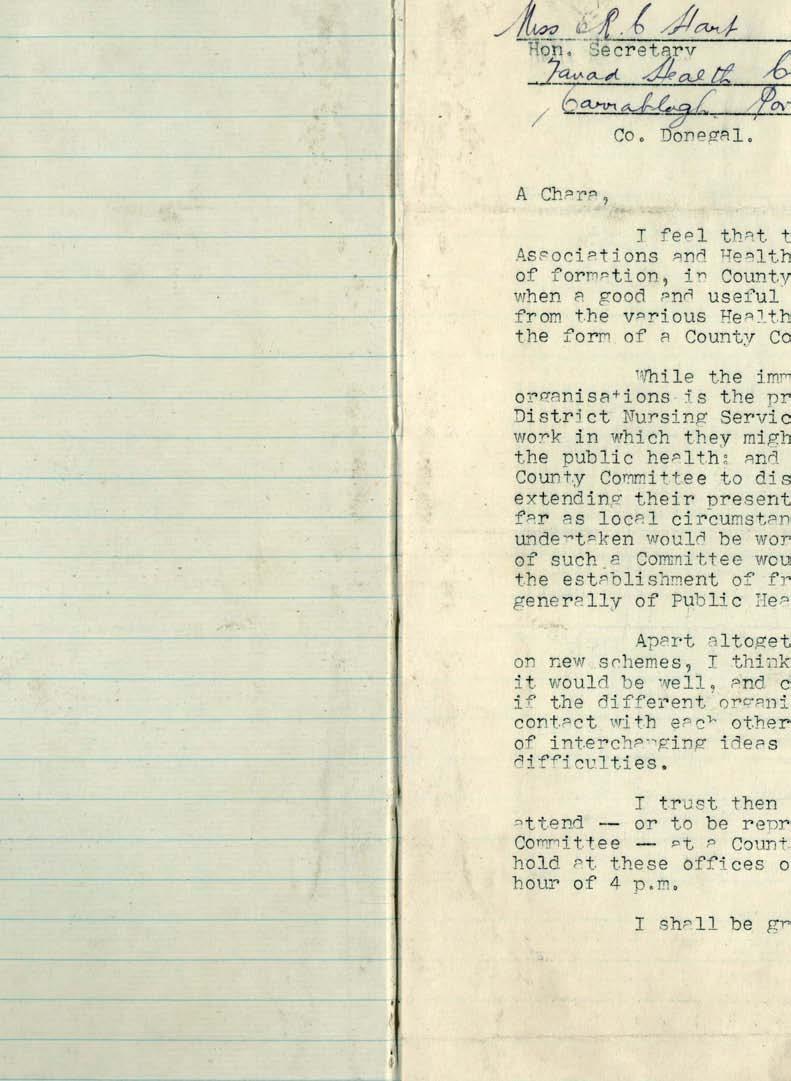 Miss R. C Hart
Hon. Secretary
Fanad Health C
Carrablagh Por
Co. Donegal.
A Chara,
I feel that t
Associations and Health
of formation, in County
when a good and useful
from the various Health
the form of a County Co
While the imm
organisations is the pr
District Nursing Servic
work in which they migh
the public health: and
County Committee to dis
extending their present
far as local circumstan
undertaken would be wor
of such a Committee wou
the establishment of fr
generally of Public Hea
Apart altoget
on new schemes, I think
it would be well, and c
if the different organi
contact with each other
of interchanging ideas
difficulties.
I trust then
attend — or to be repr
Committee — at a Count
hold at these offices o
hour of 4 p.m.
I shall be gr